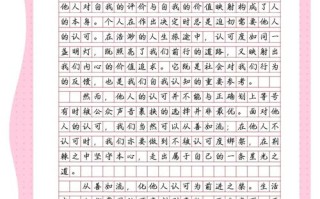 他人对自我的评价与自我的价值映射构成了人
的本身。个人在作出决定时总是迫切需要他人
的认可。在浩渺的人生旅途中，认可度如同一
盏明灯，既照亮了我们前行的道路，又映射出
我们内心的价值追求。它既是社会对我们行为
的反馈，也是我们自我认知的重要参考。
然而，他人的认可并不能与正确划上等号
有时被公众声音裹挟的选择并非最优。面对他
人的认可，我们当然可以从善如流；在他人不
认可时，我们亦要做到不被认可度绑架，在荆
棘之中坚守本心，走出属于自己的一条星光之
道。
从善如流，化他人认可为前进之桨。生活